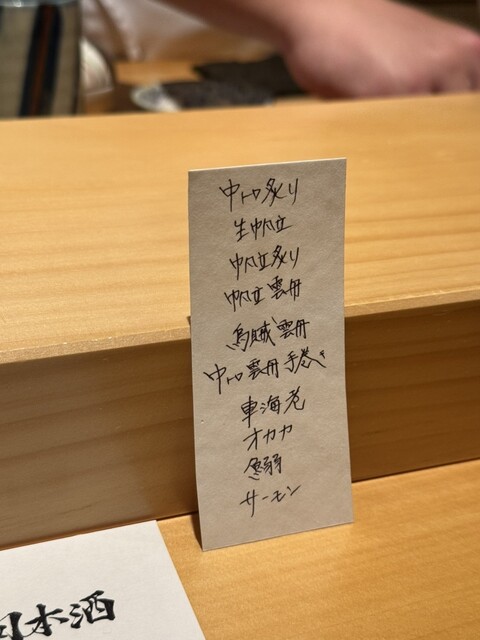 中トロ炙り
生帆立
帆立炙り
帆立雲丹
烏賊雲丹
中トロ雲丹手巻き
車海老
オカカ
サーモン
日本酒